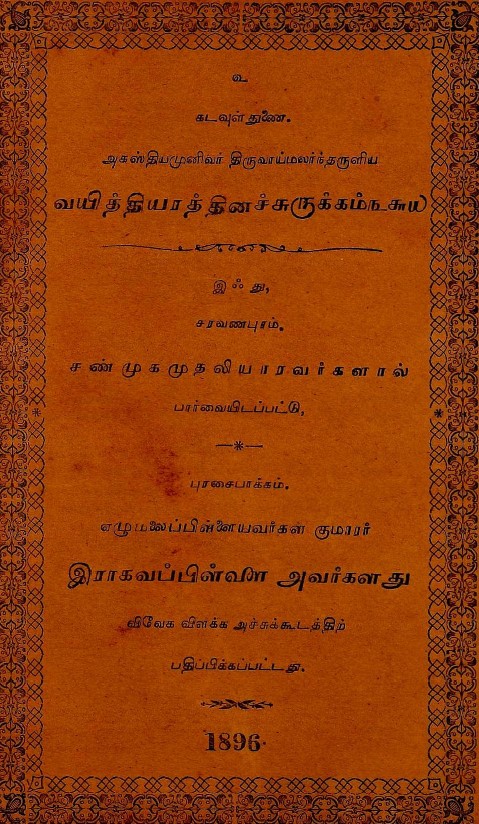 உ
கடவுள் துணை.
அகஸ்தியமுனிவர் திருவாய்மலர்ந்தருளிய
வயித்தியரத்தினச்சுருக்கம்ந௬௰
இஃது,
சரவணபுரம்.
சண்முகமுதலியாரவர்களால்
பார்வையிடப்பட்டு,
புரசைபாக்கம்.
ஏழுமலைப்பிள்ளையவர்கள் குமாரர்
இராகவப்பிள்ளை அவர்களது
விவேக விளக்க அச்சுக்கூடத்திற்
பதிப்பிக்கப்பட்டது.
1896.